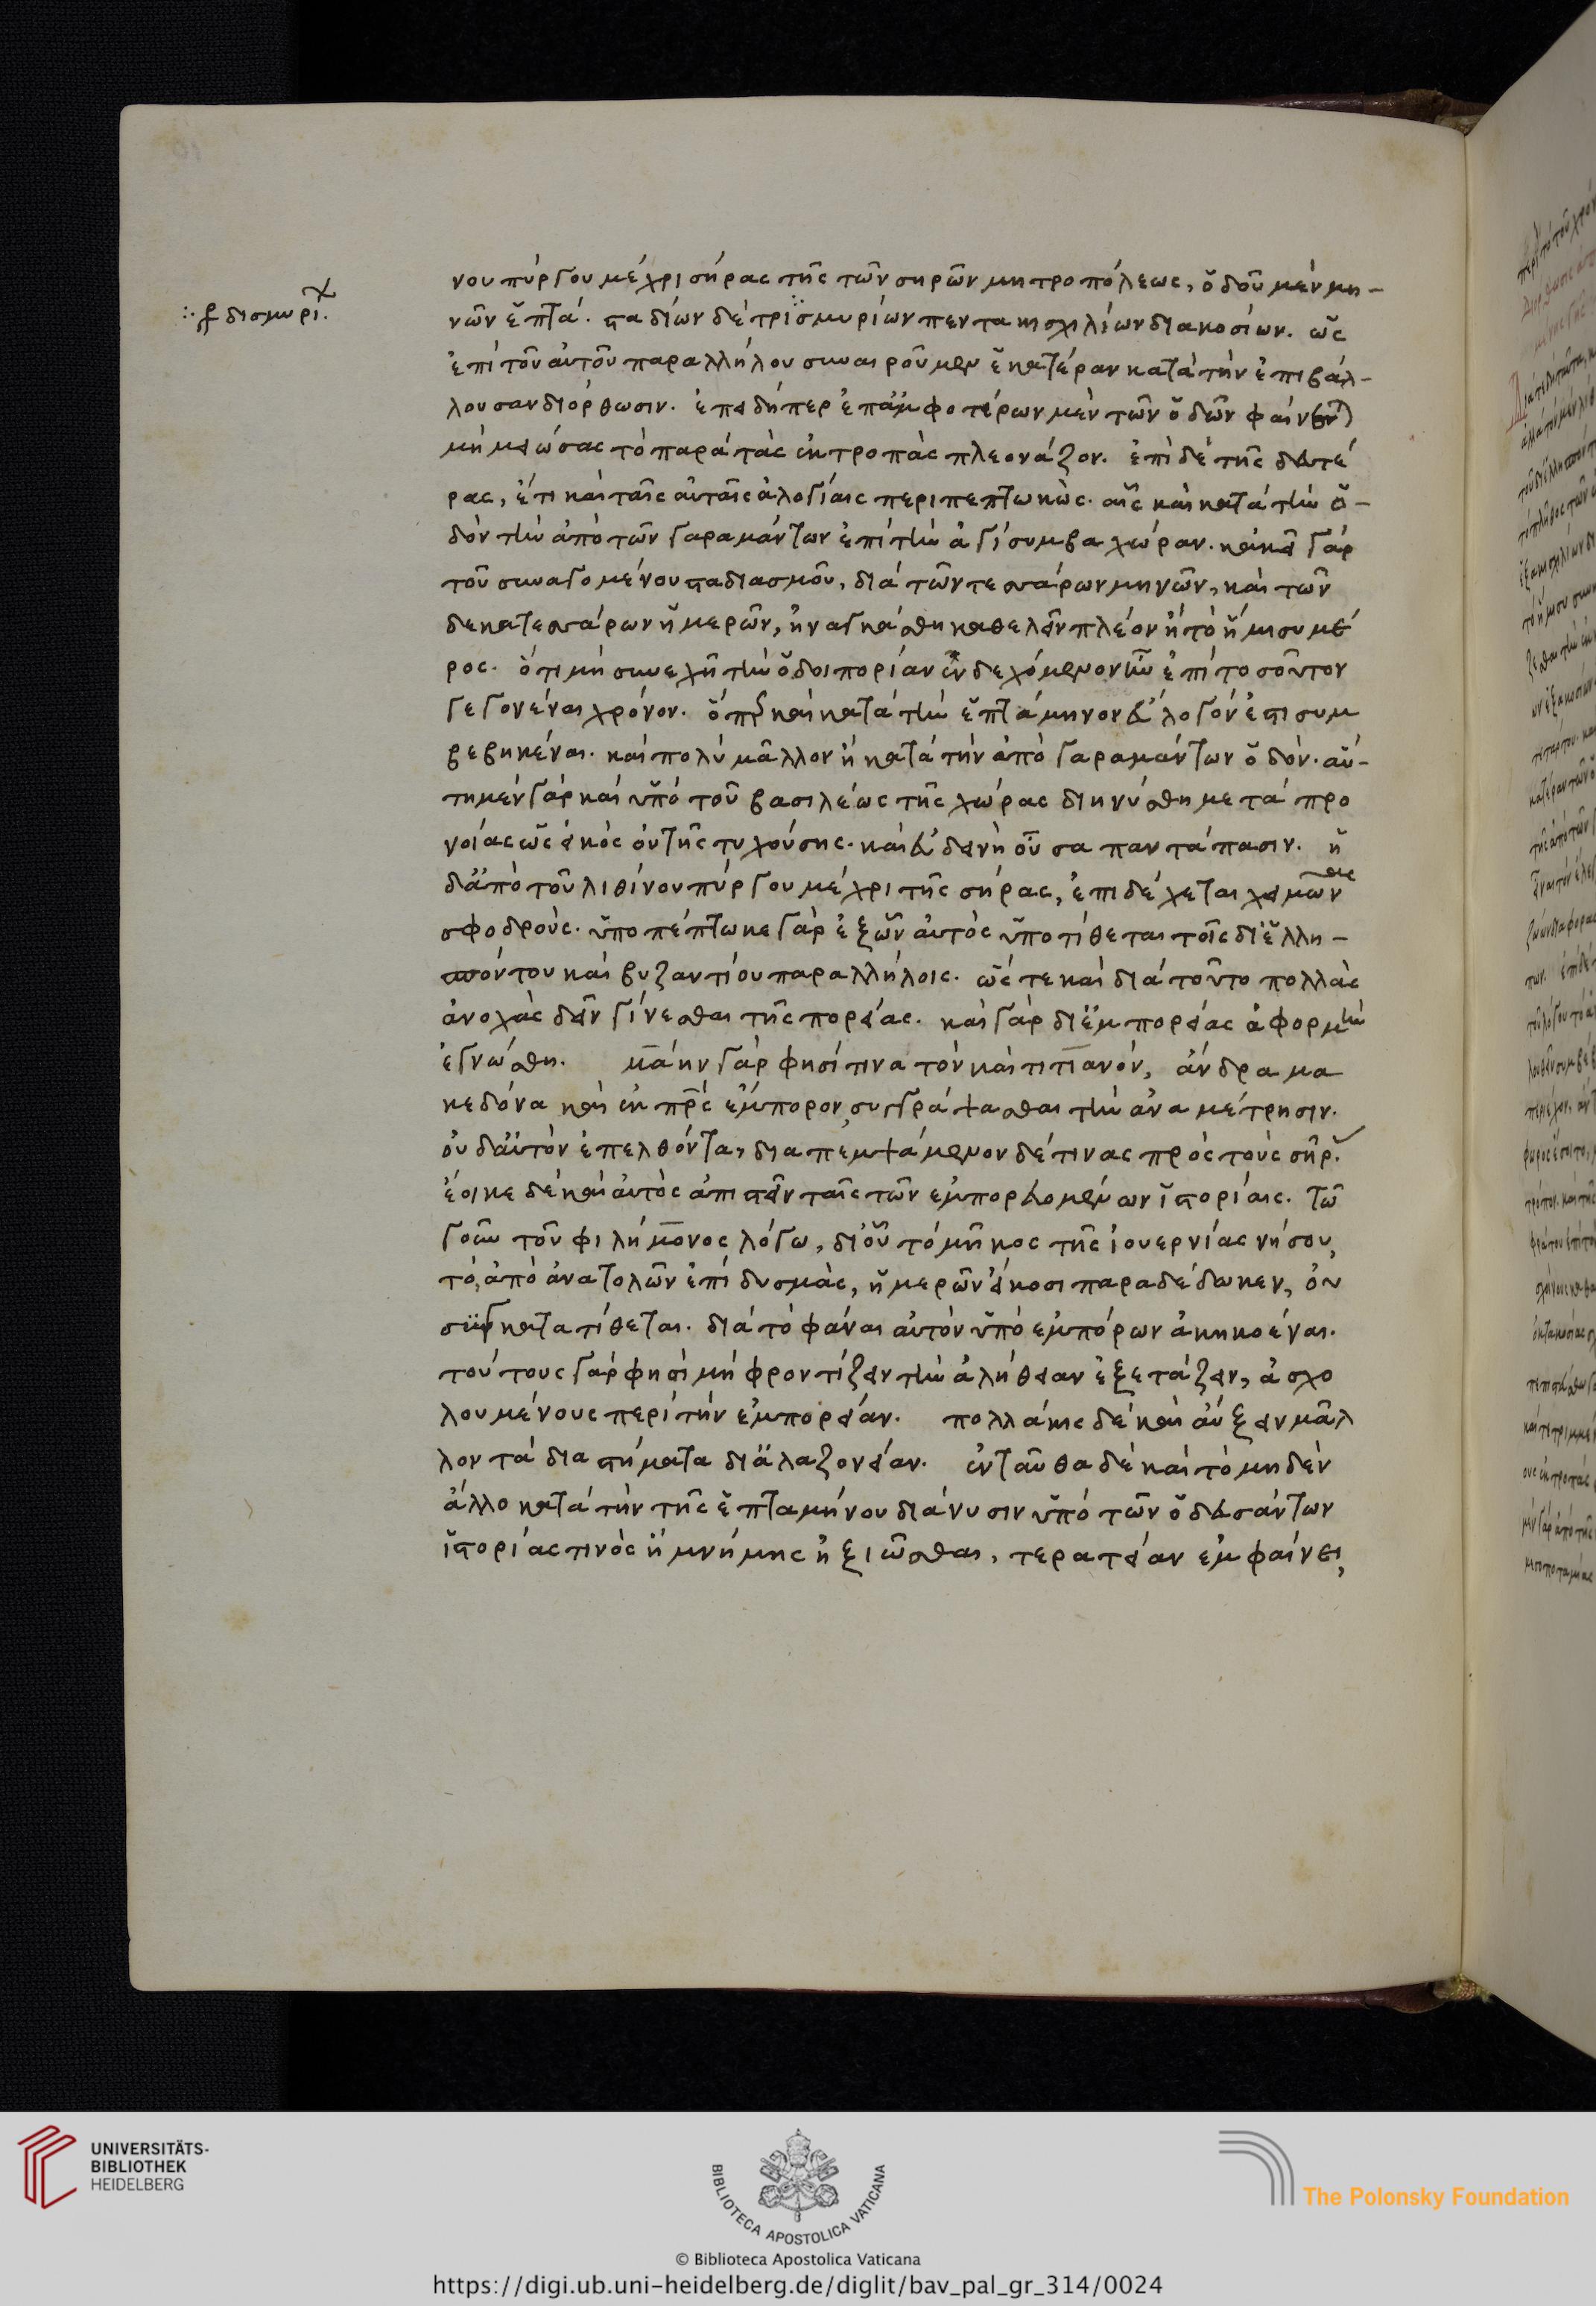 νου πύργου μέχρι σήρας τῆς τῶν σηρῶν μητροπόλεως, ὁδοῦ μὲν μη-
:· γρ δισμυρί.
νῶν ἑπτά. σταδίων δὲ τρισμυρίων πεντακισχιλίων διακοσίων. ὡς
ἐπὶ τοῦ αὐτοῦ παραλλήλου συναιροῦμεν ἑκατέραν κατὰ τὴν ἐπιβάλ-
λουσαν διόρθωσιν. ἐπειδήπερ ἐπ' ἀμφοτέρων μὲν τῶν ὁδῶν φαίν
μὴ μειώσας τὸ παρὰ τὰς ἐκτροπὰς πλεονάζον. ἐπὶ δὲ τῆς δευτέ
ρας, ἔτι καὶ ταῖς αὐταῖς ἀλογίαις περιπεπτωκὼς. αἷς καὶ κατὰ τὴν ὁ-
δὸν τὴν ἀπὸ τῶν γαραμάντων ἐπὶ τὴν ἀγίσυμβα χώραν. κἀκεῖ γὰρ
τοῦ συναγομένου σταδιασμοῦ, διὰ τῶν τεσσάρων μηνῶν, καὶ τῶν
δεκατεσσάρων ἡμερῶν, ἠναγκάσθη καθελεῖν πλέον ἢ τὸ ἥμισυ μέ
ρος. ὅτι μὴ συνεχῆ τὴν ὁδοιπορίαν ἐνδεχόμενον ἦν ἐπὶ τοσοῦτον
γεγονέναι χρόνον. ὅπερ καὶ κατὰ τὴν ἑπτάμηνον εὔλογόν ἐστι συμ
βεβηκέναι. καὶ πολὺ μᾶλλον ἢ κατὰ τὴν ἀπὸ γαραμάντων ὁδόν. αὕ-
τη μὲν γὰρ καὶ ὑπὸ τοῦ βασιλέως τῆς χώρας διηνύσθη μετὰ προ
νοίας ὡς εἰκὸς οὐ τῆς τυχούσης. καὶ εὐδεινὴ οὖσα παντάπασιν. ἡ
δ' ἀπὸ τοῦ λιθίνου πύργου μέχρι τῆς σήρας, ἐπιδέχεται χειμῶνας
σφοδρούς. ὑποπέπτωκε γὰρ ἐξ ὧν αὐτὸς ὑποτίθεται τοῖς δι' ἑλλη-
σπόντου καὶ βυζαντίου παραλλήλοις. ὥστε καὶ διὰ τοῦτο πολλὰς
ἀνοχὰς δεῖν γίνεσθαι τῆς πορείας. καὶ γὰρ δι' ἐμπορείας ἀφορμὴν
ἐγνώσθη. μάην γὰρ φησί τινα τὸν καὶ τιτιανόν, ἄνδρα μα
κεδόνα καὶ ἐκ πρς ἔμπορον, συγγράψασθαι τὴν ἀναμέτρησιν.
οὐδ' αὐτὸν ἐπελθόντα, διαπεμψάμενον δέ τινας πρὸς τοὺς σῆρ.
ἔοικε δὲ καὶ αὐτὸς ἀπιστεῖν ταῖς τῶν ἐμπορευομένων ἱστορίαις. τῶ
γοῦν τοῦ φιλήμονος λόγω, δι' οὗ τὸ μῆκος τῆς ἰουερνίας νήσου,
τὸ, ἀπὸ ἀνατολῶν ἐπὶ δυσμὰς, ἡμερῶν εἴκοσι παραδέδωκεν, οὐ
συγκατατίθεται. διὰ τὸ φάναι αὐτὸν ὑπὸ ἐμπόρων ἀκηκοέναι.
τούτους γάρ φησὶ μὴ φροντίζειν τὴν ἀλήθειαν ἐξετάζειν, ἀσχο
λουμένους περὶ τὴν ἐμπορείαν. πολλάκις δὲ καὶ αὔξειν μᾶλ
λον τὰ διαστήματα δι' ἀλαζονείαν. ἐνταῦθα δὲ καὶ τὸ μηδὲν
ἄλλο κατὰ τὴν τῆς ἑπταμήνου διάνυσιν ὑπὸ τῶν ὁδευσάντων
ἱστορίας τινὸς ἢ μνήμης ἠξιῶσθαι, τερατείαν ἐμφαίνει,
UNIVERSITÄTS-
BIBLIOTHEK
HEIDELBERG
BIBLIOTECA APOSTOLICA VATICANA
The Polonsky Foundation
© Biblioteca Apostolica Vaticana
https://digi.ub.uni-heidelberg.de/diglit/bav_pal_gr_314/0024